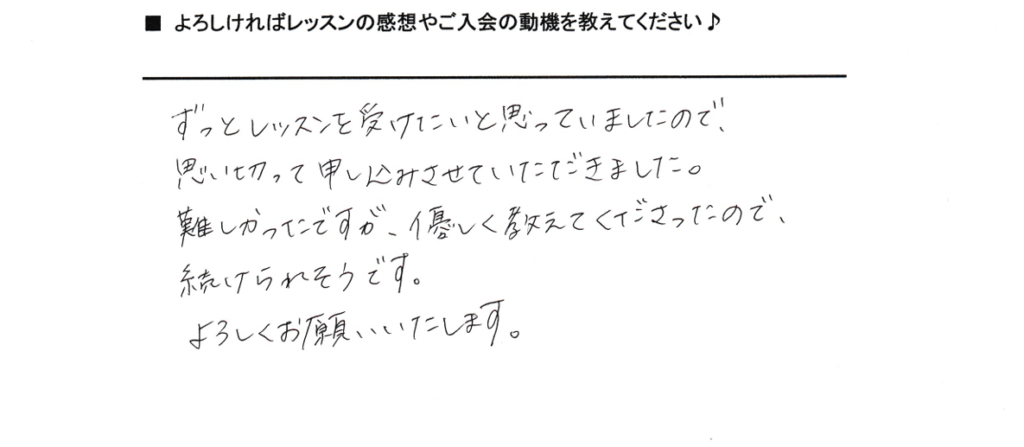 ■ よろしければレッスンの感想やご入会の動機を教えてください♪
ずっとレッスンを受けたいと思っていましたので、
思い切って申し込みさせていただきました。
難しかったですが、優しく教えてくださったので、
続けられそうです。
よろしくお願いいたします。